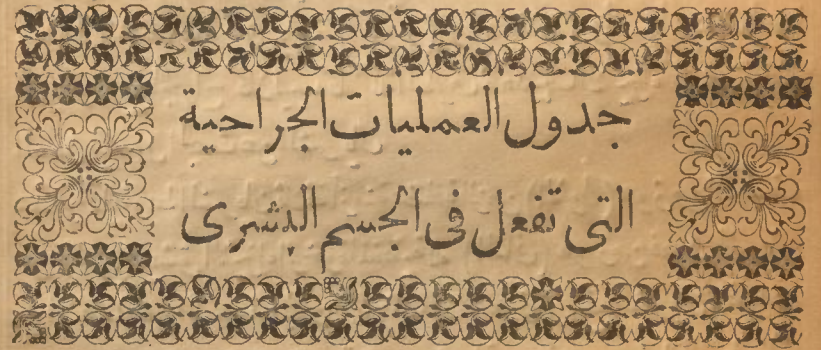 جدول العمليات الجراحية
التى تفعل فى الجسم البشرى